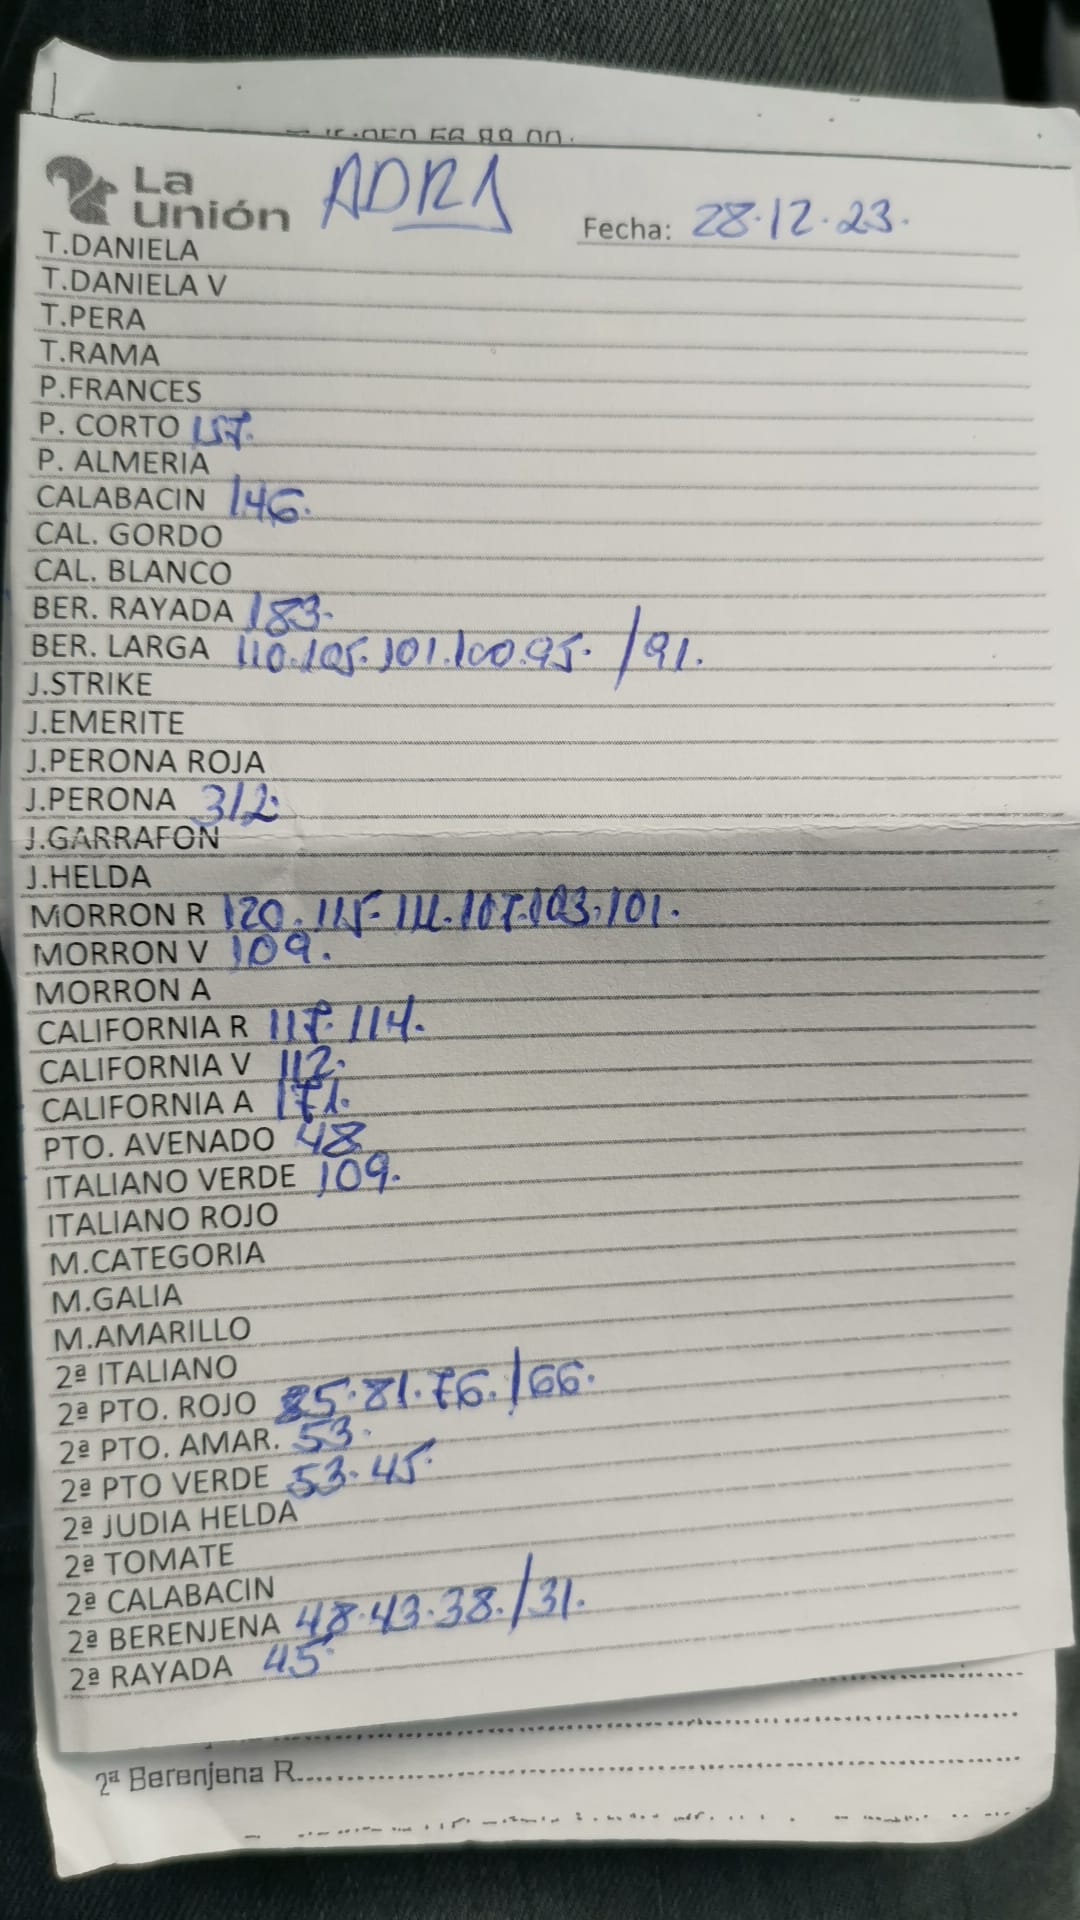 La
Unión
ADRA
Fecha: 28.12.23.
T.DANIELA
T.DANIELA V
T.PERA
T.RAMA
P.FRANCES
P. CORTO 157.
P. ALMERIA
CALABACIN 146.
CAL. GORDO
CAL. BLANCO
BER. RAYADA 183.
BER. LARGA 110.105.101.100.95. /91.
J.STRIKE
J.EMERITE
J.PERONA ROJA
J.PERONA 312.
J.GARRAFON
J.HELDA
MORRON R 120.115.111.107.103.101.
MORRON V 109.
MORRON A
CALIFORNIA R 117.114.
CALIFORNIA V 112.
CALIFORNIA A 171.
PTO. AVENADO 48
ITALIANO VERDE 109.
ITALIANO ROJO
M.CATEGORIA
M.GALIA
M.AMARILLO
2ª ITALIANO
2ª PTO. ROJO 85.81.76./66.
2ª PTO. AMAR. 53.
2ª PTO VERDE 53.45.
2ª JUDIA HELDA
2ª TOMATE
2ª CALABACIN
2ª BERENJENA 48.43.38./31.
2ª RAYADA 45.
2ª Berenjena R